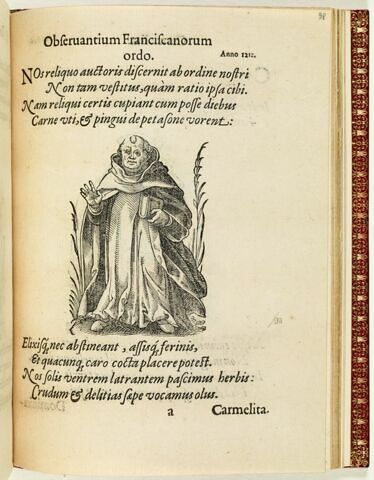 98
Obseruantium Franciscanorum
ordo.
Anno 1212.
NOs reliquo auctoris discernit ab ordine nostri
Non tam vestitus, quàm ratio ipsa cibi.
Nam reliqui certis cupiant cum posse diebus
Carne vti, & pingui de petasone vorent:
Elixisq́; nec abstineant, assisq́; ferinis,
Et quacunq; caro cocta placere potest.
Nos solis ventrem latrantem pascimus herbis:
Crudum & delitias sæpe vocamus olus.
a
Carmelita.